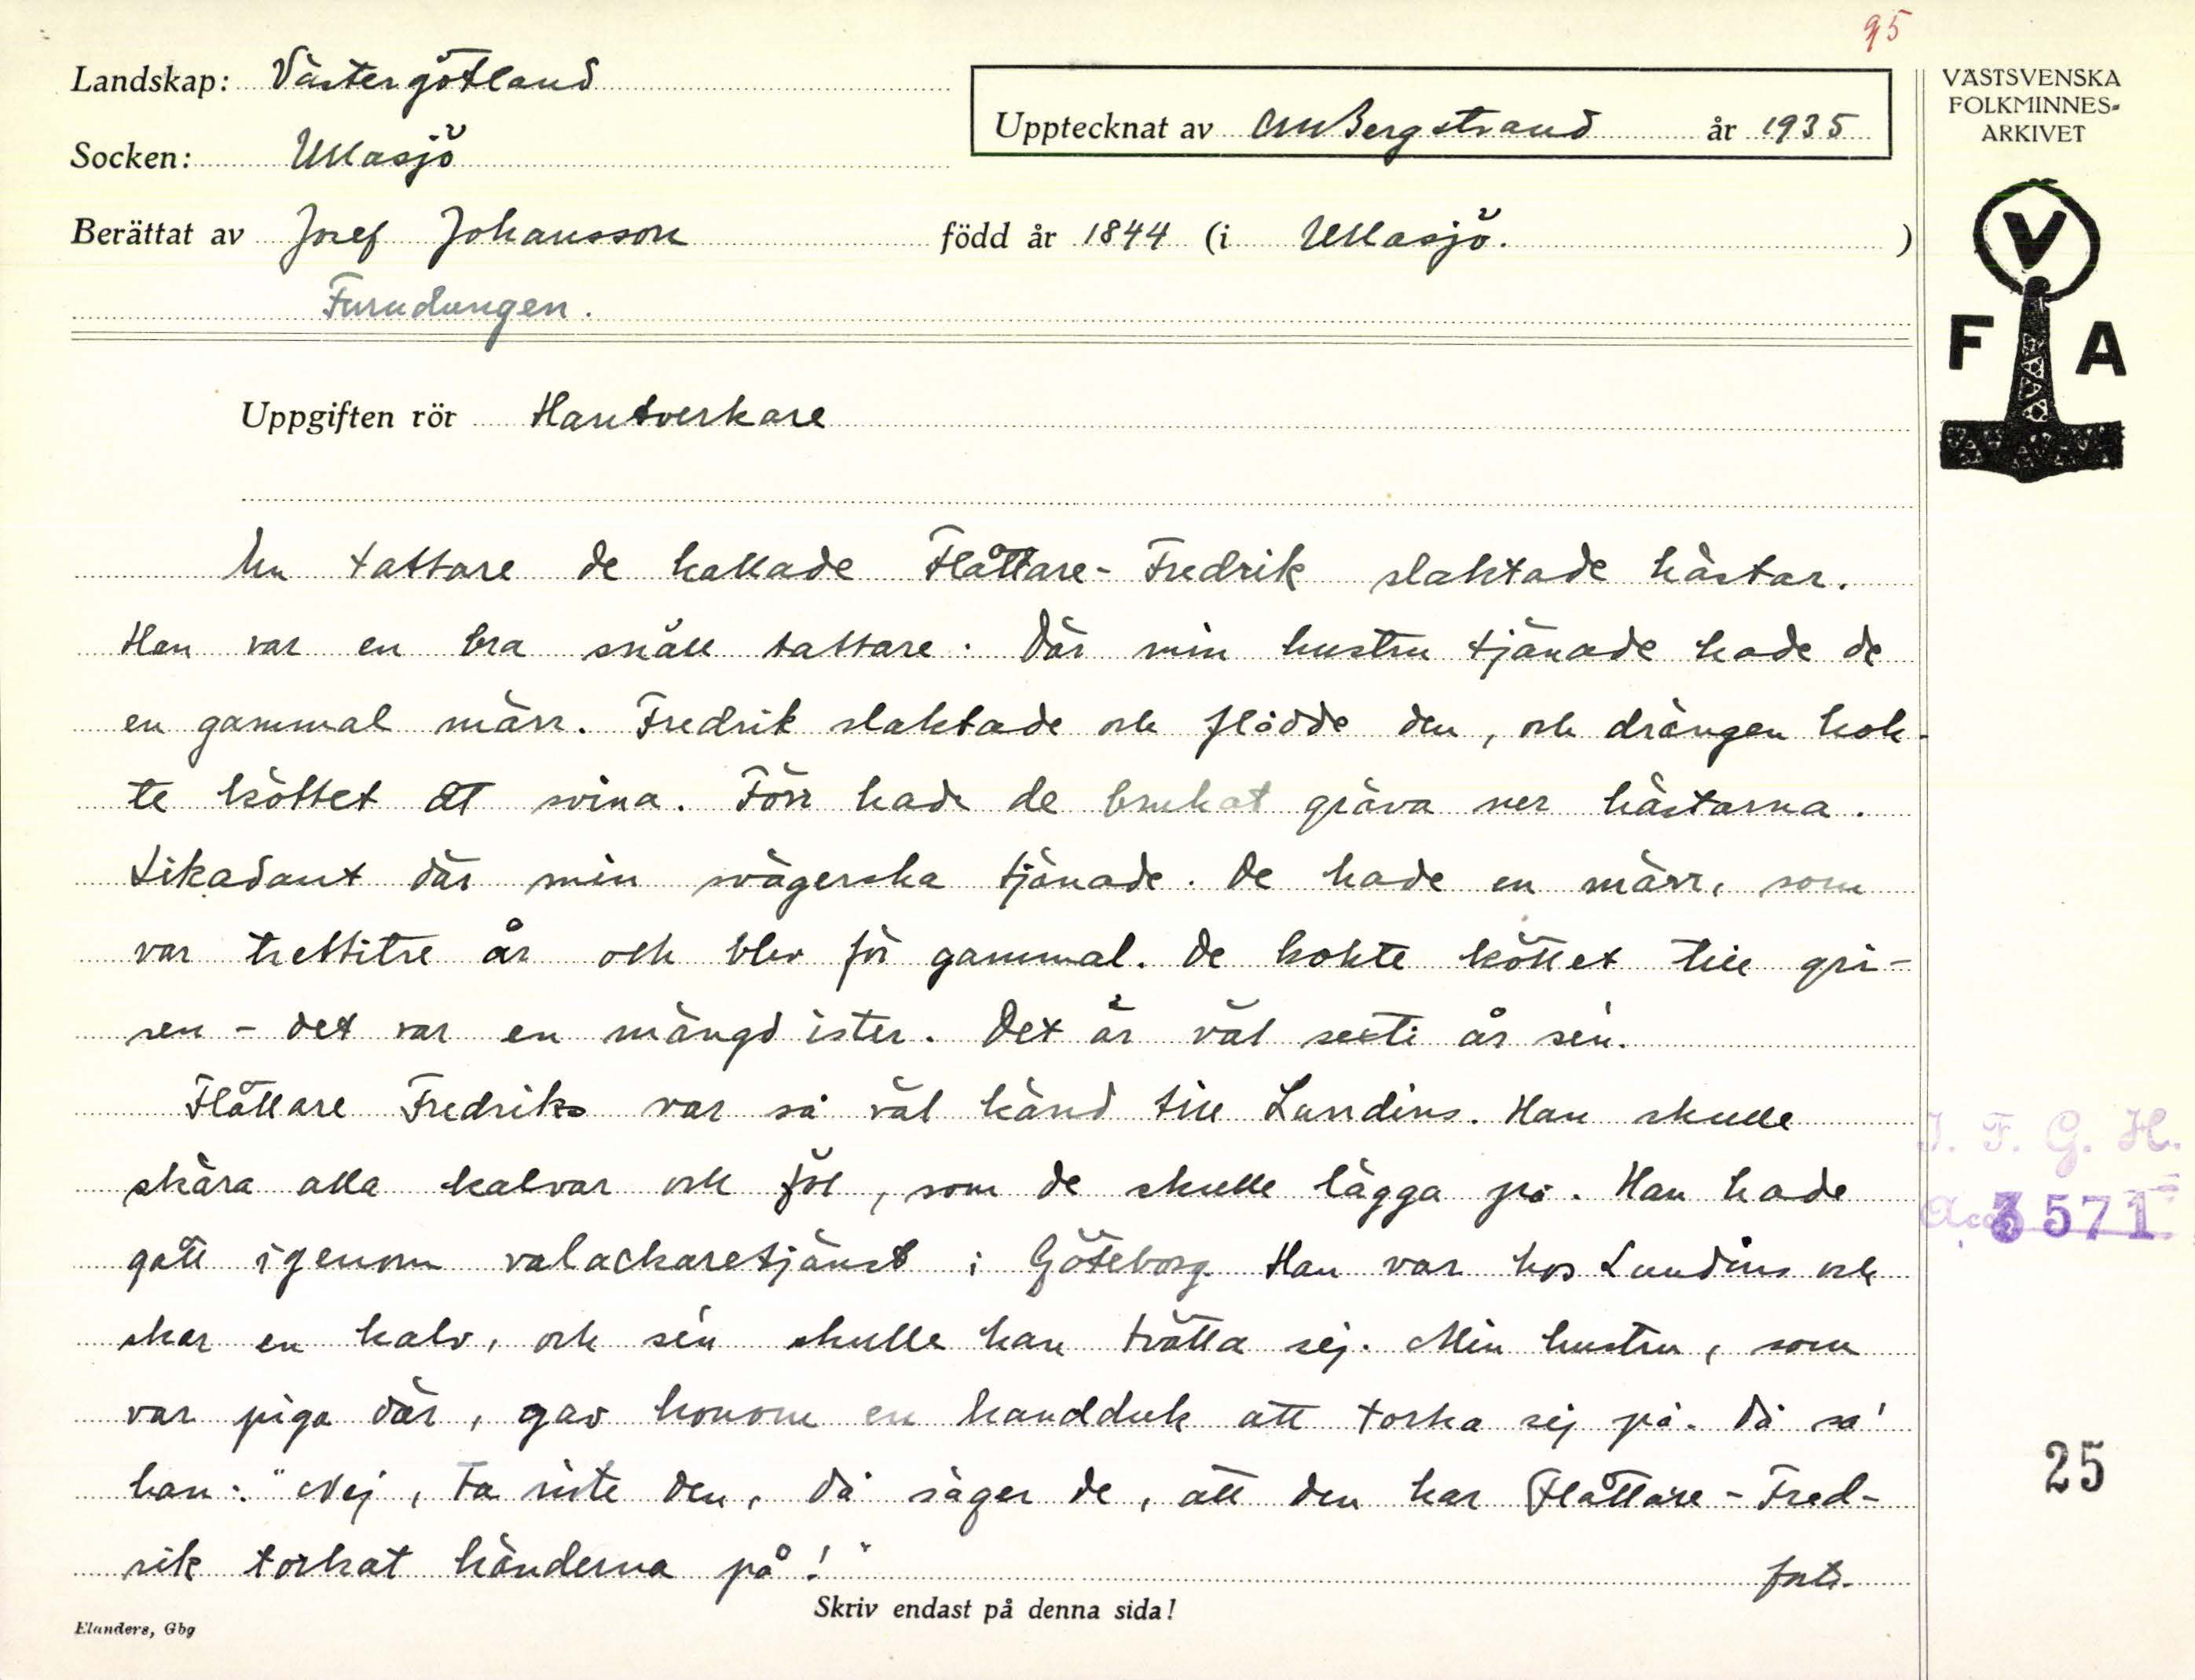 95
Landskap: Västergötland
Upptecknat av CMBergstrand år 1935
VÄSTSVENSKA
FOLKMINNES-
ARKIVET
Socken: Ullasjö
Berättat av Josef Johansson född år 1844 (i Ullasjö.)
Furudungen.
V
F A
Uppgiften rör Hantverkare
En tattare de kallade Flåttare-Fredrik slaktade hästar.
Han var en bra snäll tattare. Där min hustru tjänade hade de
en gammal märr. Fredrik slaktade och flådde den, och drängen kok-
te köttet åt svina. Förr hade de brukat gräva ner hästarna.
Likadant där min svägerska tjänade. De hade en märr, som
var trettitre år och blev för gammal. De kokte köttet till gri-
sen - det var en mängd ister. Det är väl sexti år sen.
Flåttare Fredriks var så väl känd till Lundins. Han skulle
skära alla kalvar och föl, som de skulle lägga på. Han hade
gått igenom valackaretjänst i Göteborg. Han var hos Lundins och
skar en kalv, och sen skulle han tvätta sej. Min hustru, som
var piga där, gav honom en handduk att torka sej på. Då sa'
han: "Nej, ta inte den, då säger de, att den har Flåttare-Fred-
rik torkat händerna på!"
forts.
I. F. G. H.
Acc. 3571
25
Skriv endast på denna sida!
Elanders, Gbg